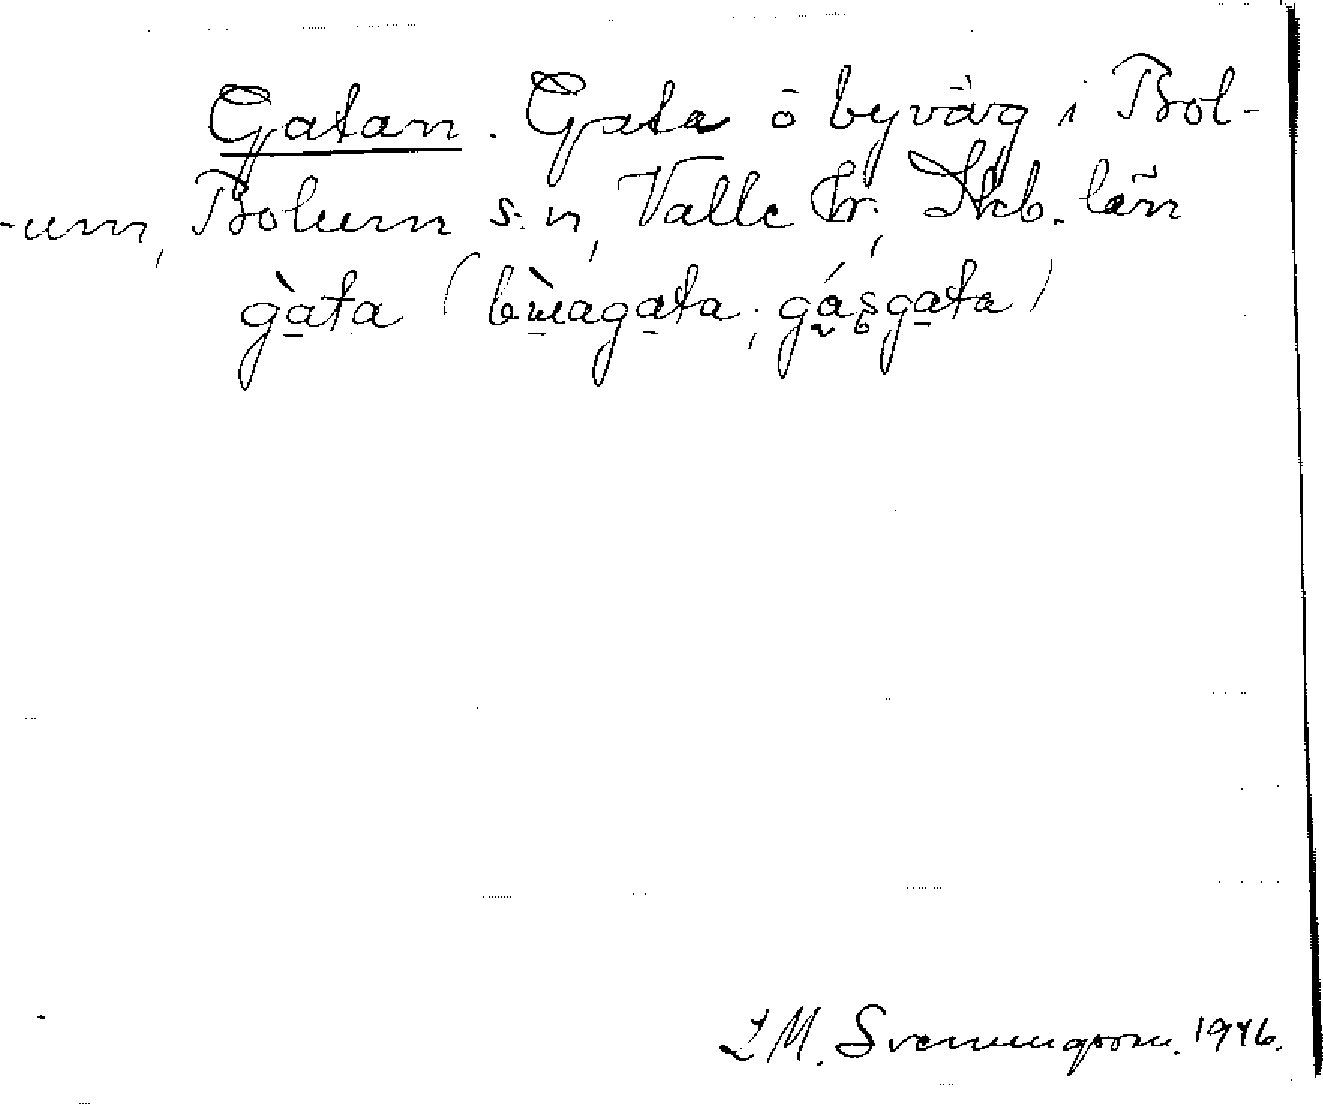 Gatan. Gata o byväg i Bol-
-um, Bolum s:n, Valle hr, Skb. län
gàta (bùagata; gásgata)
L M. Svenungsson. 1946.